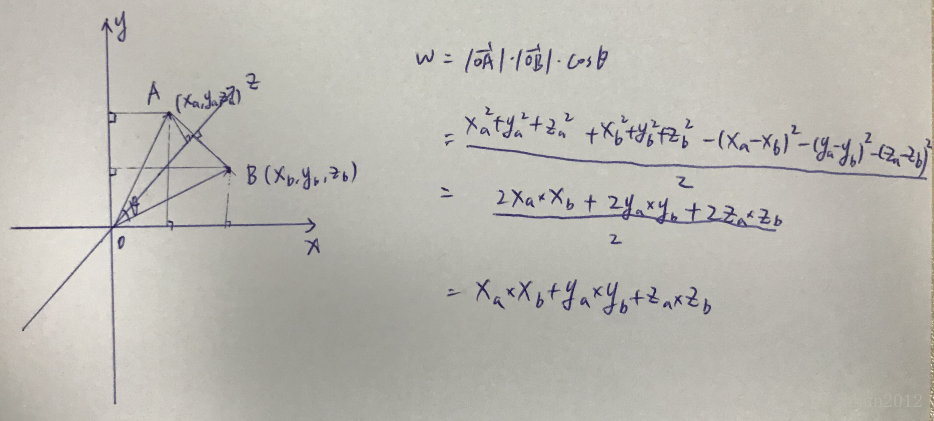 y
z
A (xₐ,yₐ,zₐ)
B (x_b, y_b, z_b)
θ
O
x
W = |OA⃗|·|OB⃗|·cosθ
= (xₐ²+yₐ²+zₐ²+x_b²+y_b²+z_b²-(xₐ-x_b)²-(yₐ-y_b)²-(zₐ-z_b)²)/2
= (2xₐ×x_b + 2yₐ×y_b + 2zₐ×z_b)/2
= xₐ×x_b+yₐ×y_b+zₐ×z_b